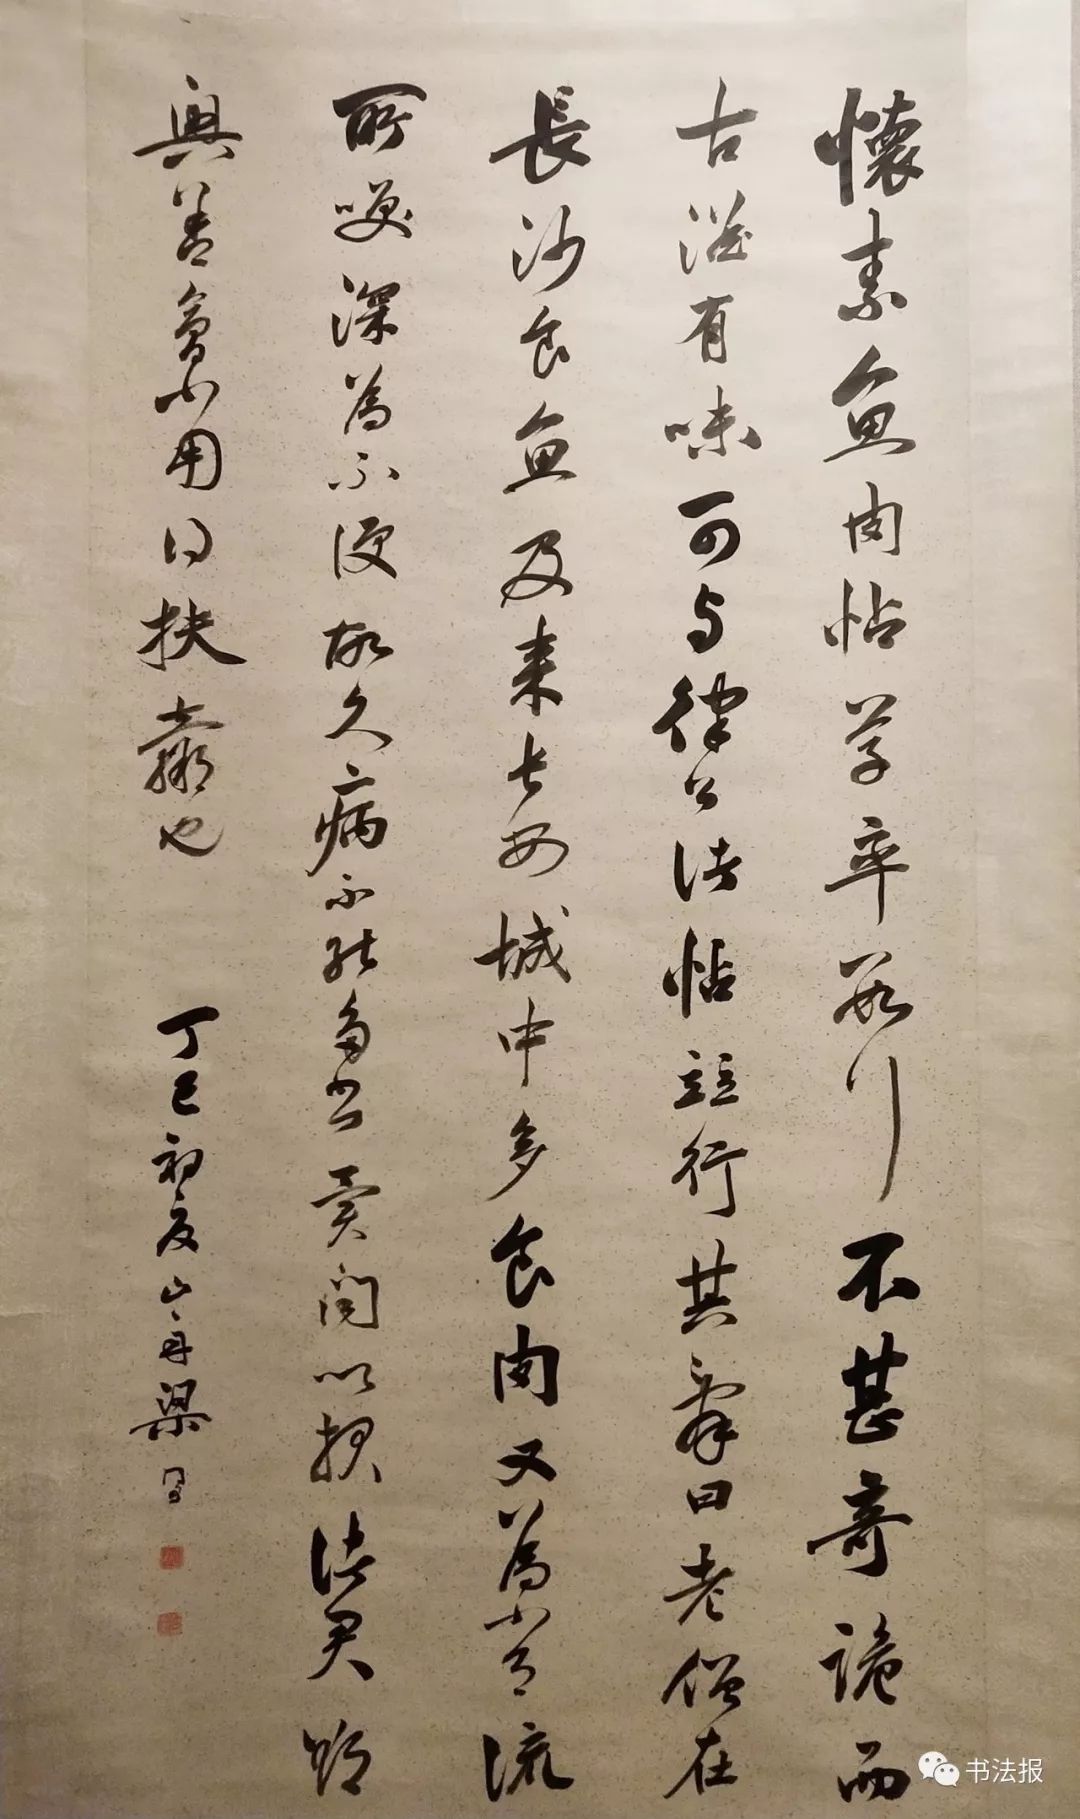 懷素魚肉帖草率數行不甚奇詭而
古澁有味可与律公諸帖並行其辭曰老僧在
長沙食魚及來長安城中多食肉又為常流
所咲深為不便故久病不能多書實問以損諸君欲
興善會不用日扶羸也
丁巳初夏山舟梁同書
书法报